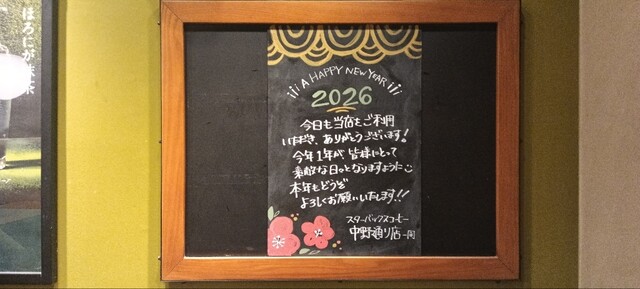 ほろにが抹茶
A HAPPY NEW YEAR
2026
今日も当店をご利用
いただき、ありがとうございます!
今年1年が皆様にとって
素敵な日々となりますように
本年もどうぞ
よろしくお願いいたします!!
スターバックスコーヒー
中野通り店一同